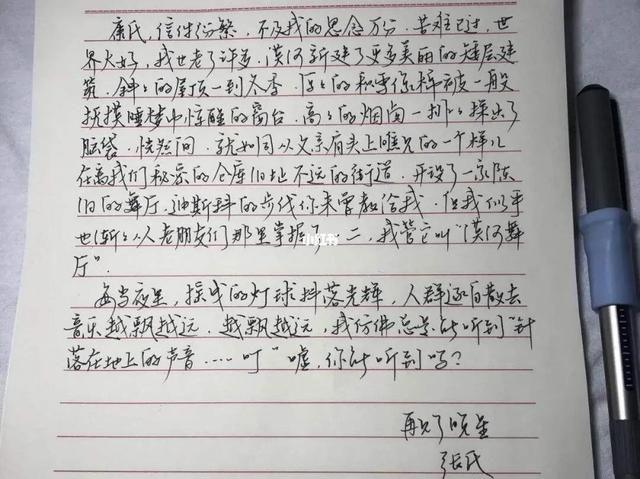 康氏,信件纷繁,不及我的思念万份.苦难已过,世
界大好,我也老了许多.漠河新建了更多美丽的矮层建
筑.斜斜的屋顶一到冬季.厚厚的积雪像棉被一般
抚摸睡梦中惊醒的窗台.高高的烟囱一排排探出了
脑袋.恍然间.就如同从文亲肩头上瞧见的一个样儿
在离我们秘密的仓库旧址不远的街道.开设了一家陈
旧的舞厅.迪斯科的步伐你未曾教给我.但我似乎
也渐渐从老朋友们那里掌握了一二,我管它叫“漠河舞
厅”.
每当夜里,摇曳的灯球抖落光辉,人群逐自散去
音乐越飘越远.越飘越远,我仿佛总是能听到“针
落在地上的声音……叮”嘘,你能听到吗?
小红书
再见了晚星
张氏